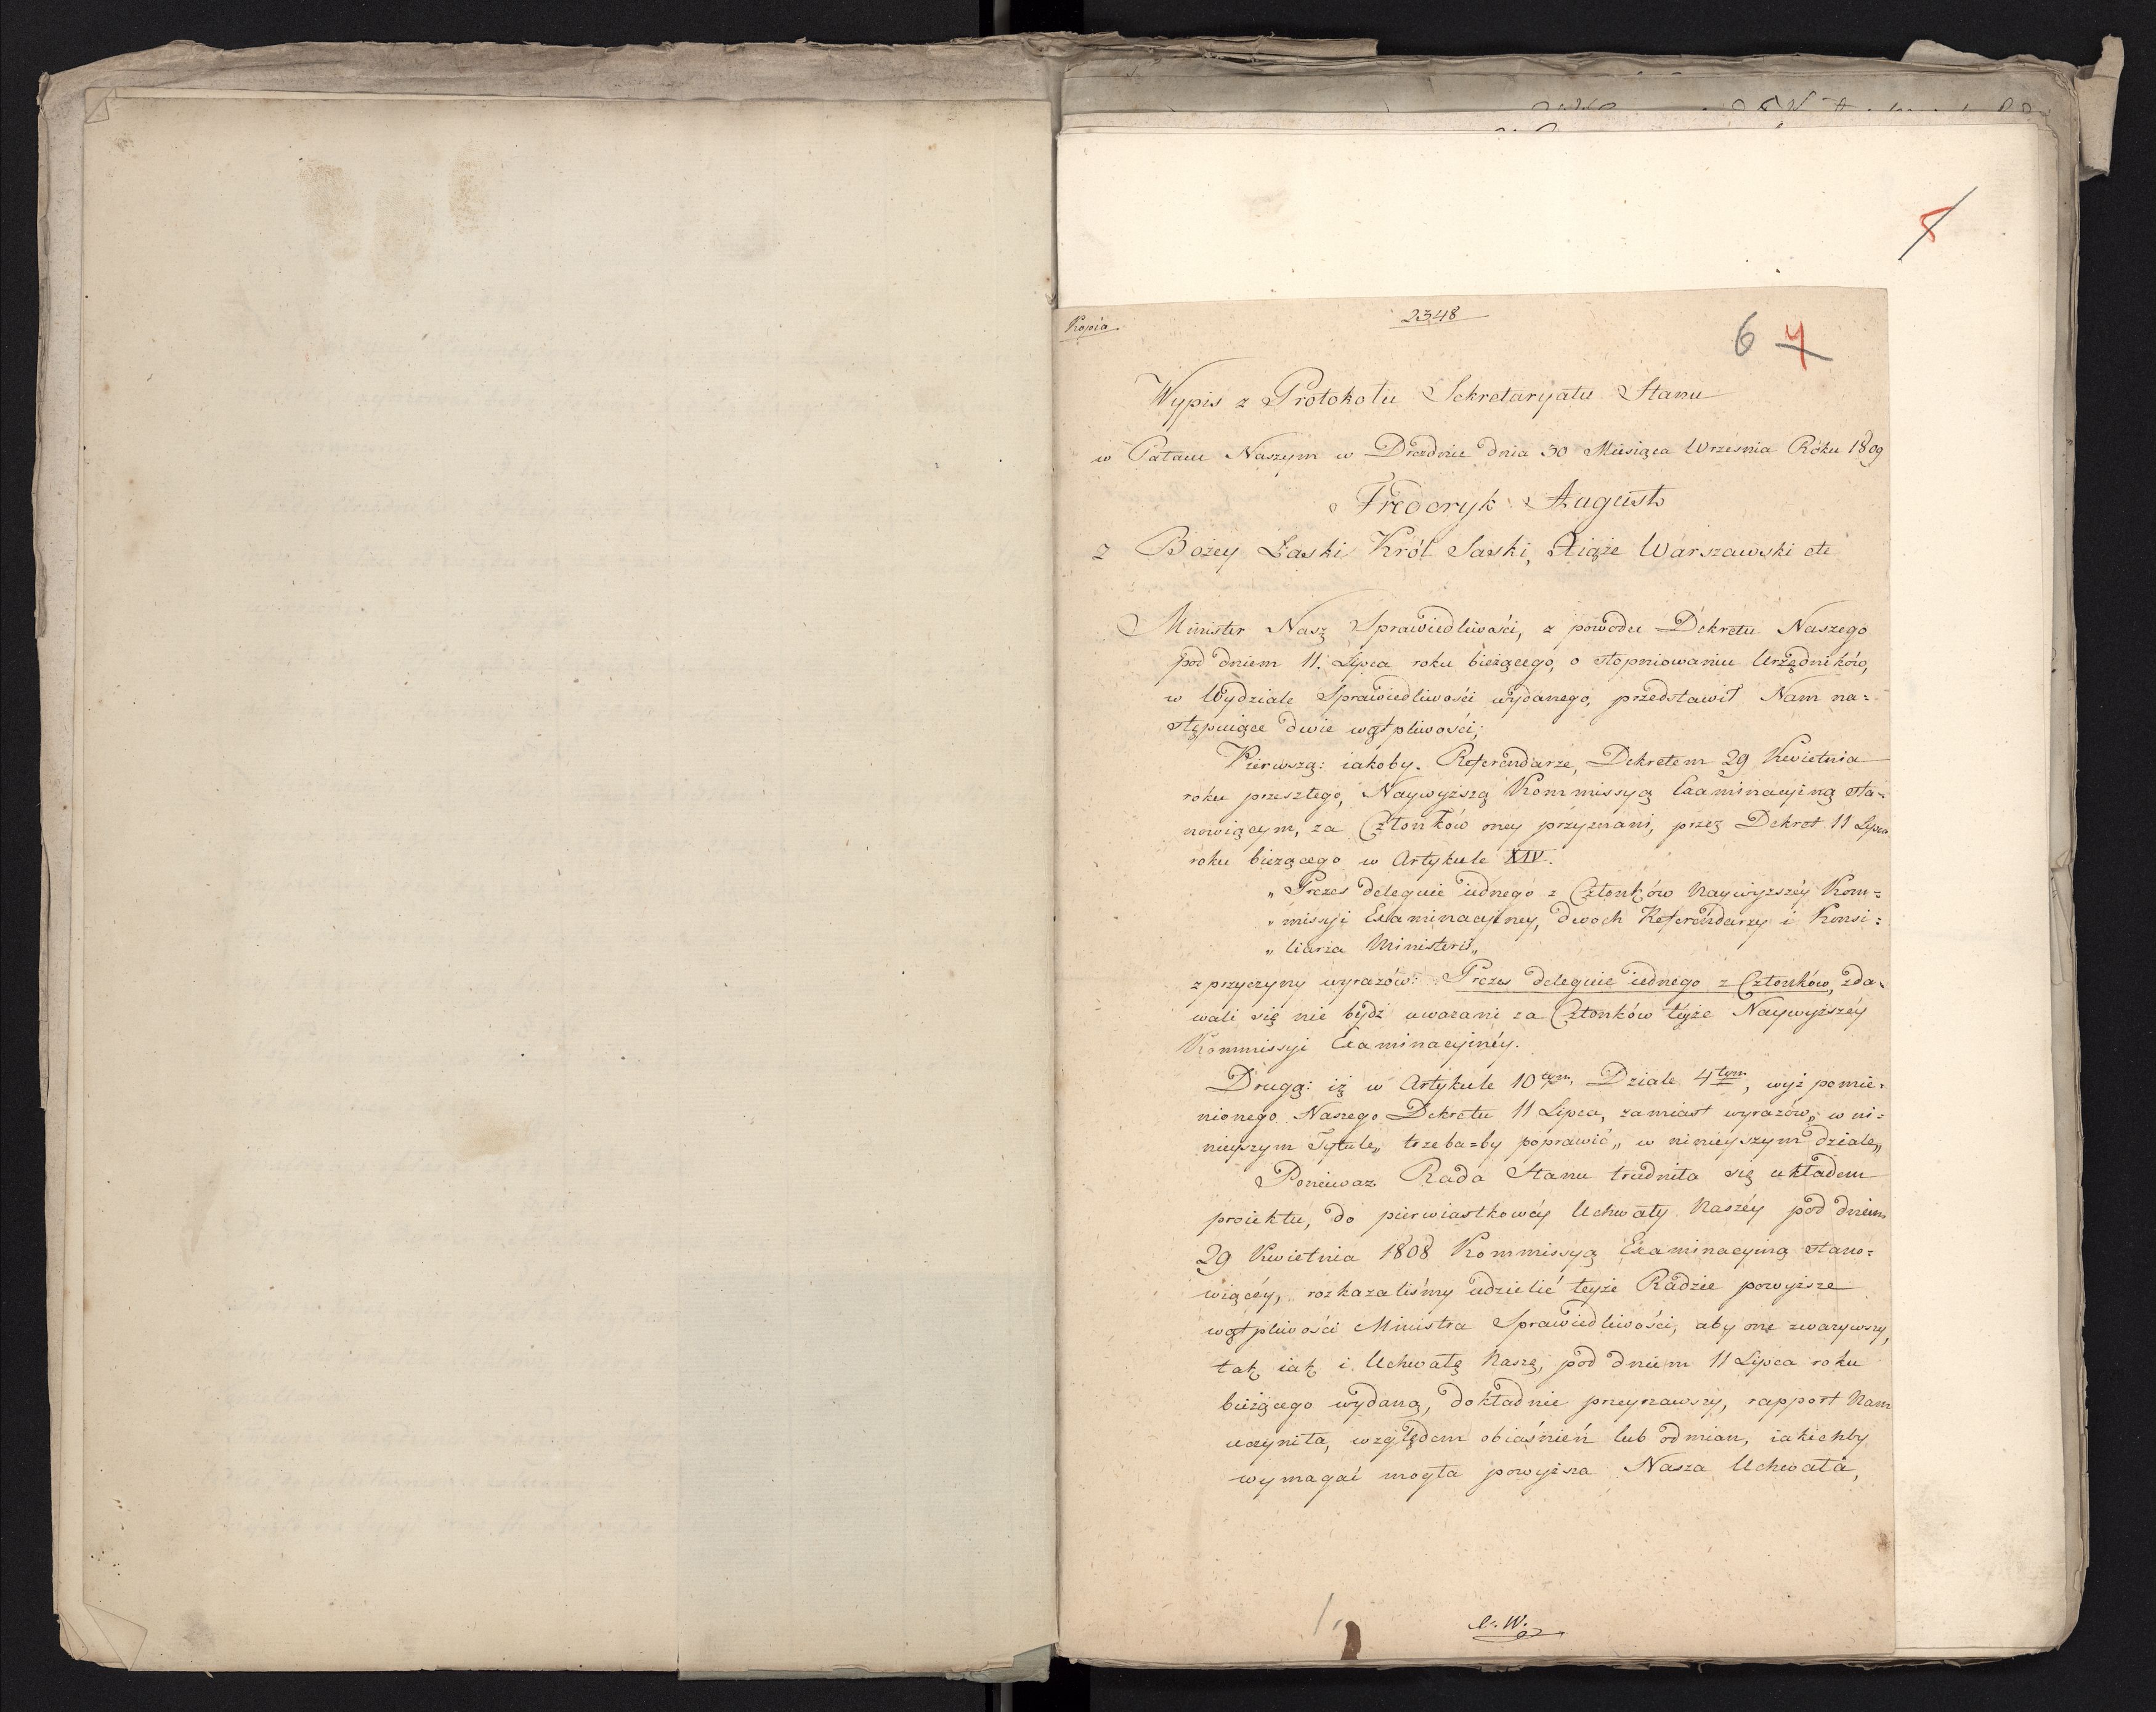 5
Kopia
2348
6 4
Wypis z Protokołu Sekretaryatu Stanu
w Pałacu Naszym w Dreźdnie dnia 30 Miesiąca Września Roku 1809
Frederyk August
z Bożey Łaski Król Saski, Xiąże Warszawski etc
Minister Nasz Sprawiedliwości, z powodu Dekretu Naszego
pod dniem 11. Lipca roku bieżącego, o stopniowaniu Urzędników,
w Wydziale Sprawiedliwości wydanego, przedstawił Nam na=
stępuiące dwie wątpliwości;
Pierwszą: iakoby Referendarze, Dekretem 29 Kwietnia
roku przeszłego, Naywyższą Kommissyą Examinacyiną sta=
nowiącym, za Członków oney przyznani, przez Dekret 11 Lipca
roku bieżącego w Artykule XIV.
„ Prezes deleguie iednego z Członków Naywyższéy Kom=
„ missyi Examinacyiney, dwoch Referendarzy i Konsi=
„ liarza Ministerii„
z przyczyny wyrazów: Prezes deleguie iednego z Członków, zda=
wali się nie bydź uważani za Członków teyże Naywyższéy
Kommissyi Examinacyinéy.
Drugą: iż w Artykule 10tym, Dziale 4tym, wyż pomie=
nionego Naszego Dekretu 11 Lipca, zamiast wyrazów„ w ni=
nieyszym Tytule„ trzeba=by poprawić„ w ninieyszym dziale„
Ponieważ Rada Stanu trudniła się układem
proiektu, do pierwiastkowéy Uchwały Naszéy pod dniem
29 Kwietnia 1808 Kommissyą Examinacyiną stano=
wiącéy, rozkazaliśmy udzielić teyże Radzie powyższe
wątpliwości Ministra Sprawiedliwości, aby one zważywszy,
tak iak i Uchwałę Naszę, pod dniem 11 Lipca roku
bieżącego wydaną, dokładnie przeyrzawszy, rapport Nam
uczyniła, względem obiaśnień lub odmian, iakichby
wymagać mogła powyższa Nasza Uchwała,